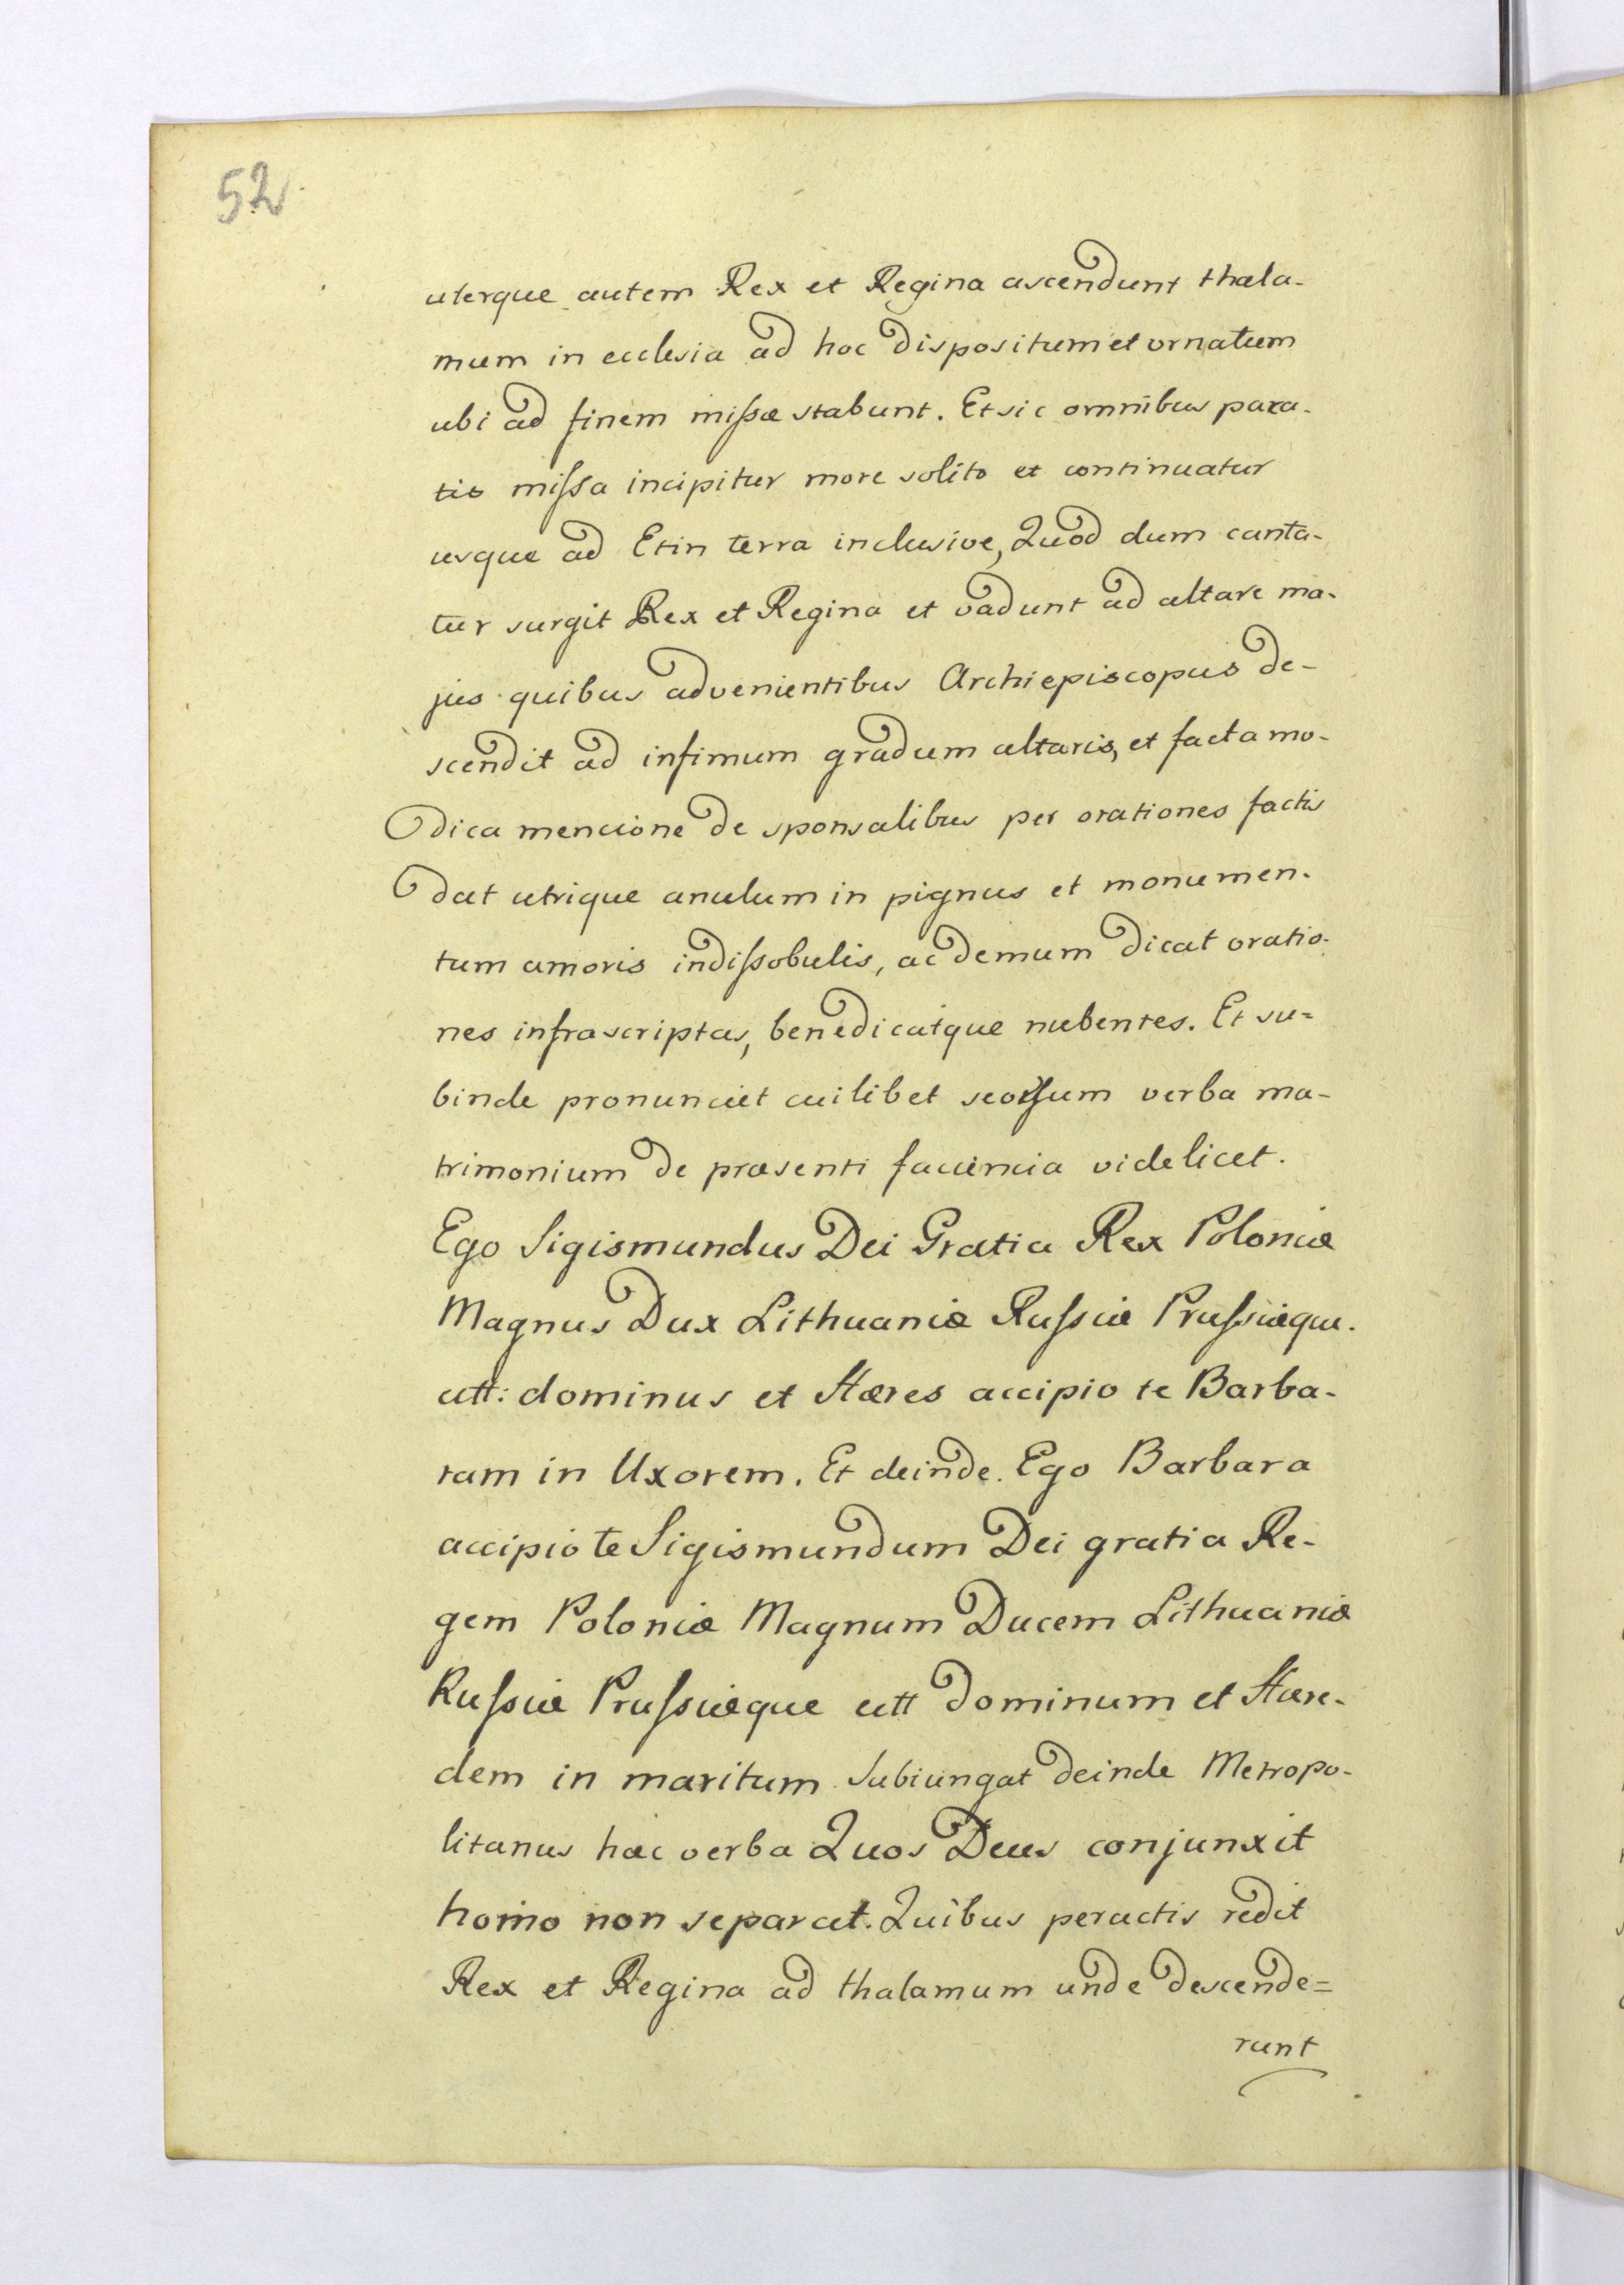 52
uterque autem Rex et Regina ascendunt thala-
mum in ecclesia ad hoc dispositum et ornatum
ubi ad finem missæ stabunt. Et sic omnibus para-
tis missa incipitur more solito et continuatur
usque ad Et in terra inclusive, Quod dum canta-
tur surgit Rex et Regina et vadunt ad altare ma-
jus quibus advenientibus Archiepiscopus de-
scendit ad infimum gradum altaris, et facta mo-
dica mencione de sponsalibus per orationes factis
dat utrique anulum in pignus et monumen-
tum amoris indissobulis, ac demum dicat oratio-
nes infrascriptas, benedicatque nubentes. Et su=
binde pronunciet cuilibet seorsum verba ma-
trimonium de præsenti faciencia videlicet.
Ego Sigismundus Dei Gratia Rex Poloniæ
Magnus Dux Lithuaniæ Russiæ Prussiæque.
ett: dominus et Hæres accipio te Barba-
ram in Uxorem. Et deinde. Ego Barbara
accipio te Sigismundum Dei gratia Re-
gem Poloniæ Magnum Ducem Lithuaniæ
Russiæ Prussiæque ett dominum et Hære-
dem in maritum. Subiungat deinde Metropo-
litanus hæc verba Quos Deus conjunxit
homo non separat. Quibus peractis redit
Rex et Regina ad thalamum unde descende=
runt